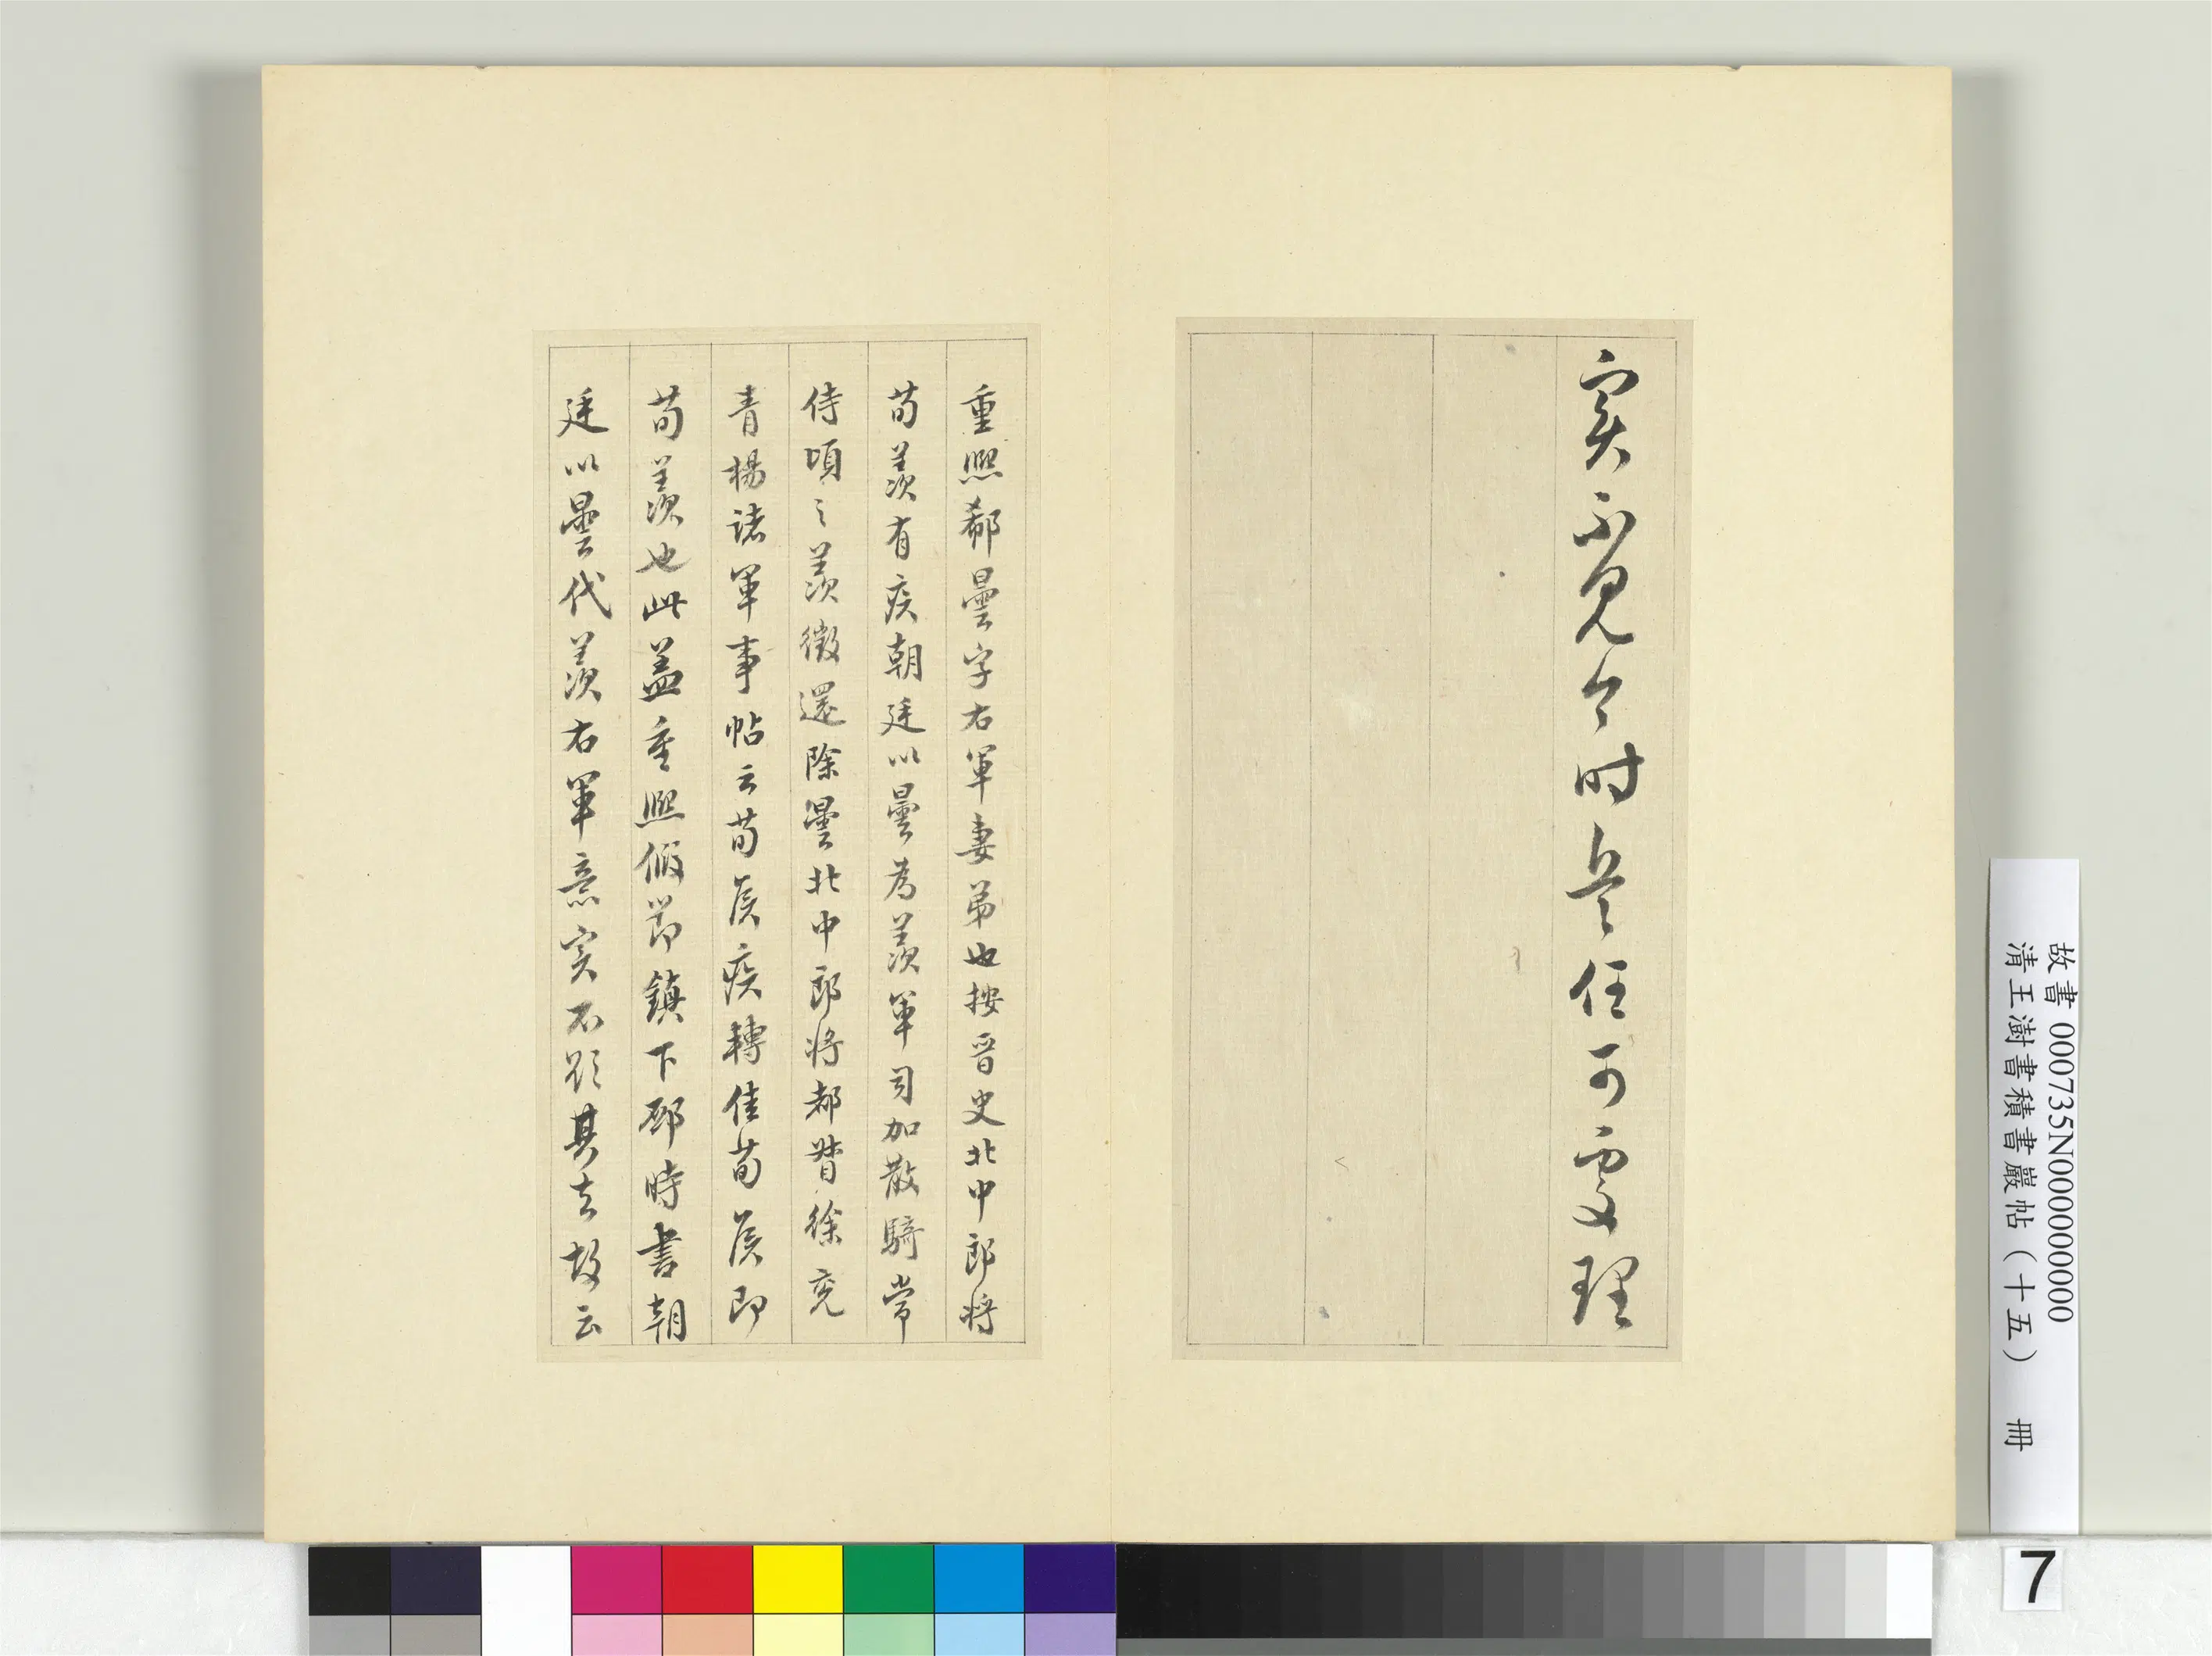 實不見今時兵任可處理
重熈郗曇字右軍妻弟也按晉史北中郎将
荀羨有疾朝廷以曇為羨軍司加散騎常
侍頃之羨徵還除曇北中郎将都督徐兗
青楊諸軍事帖云荀侯疾轉佳荀侯即
荀羨也此盖重熈假節鎮下邳時書朝
廷以曇代羨右軍意实不欲其去故云
故書 000735N000000000
清王澍書積書巖帖（十五） 冊
7